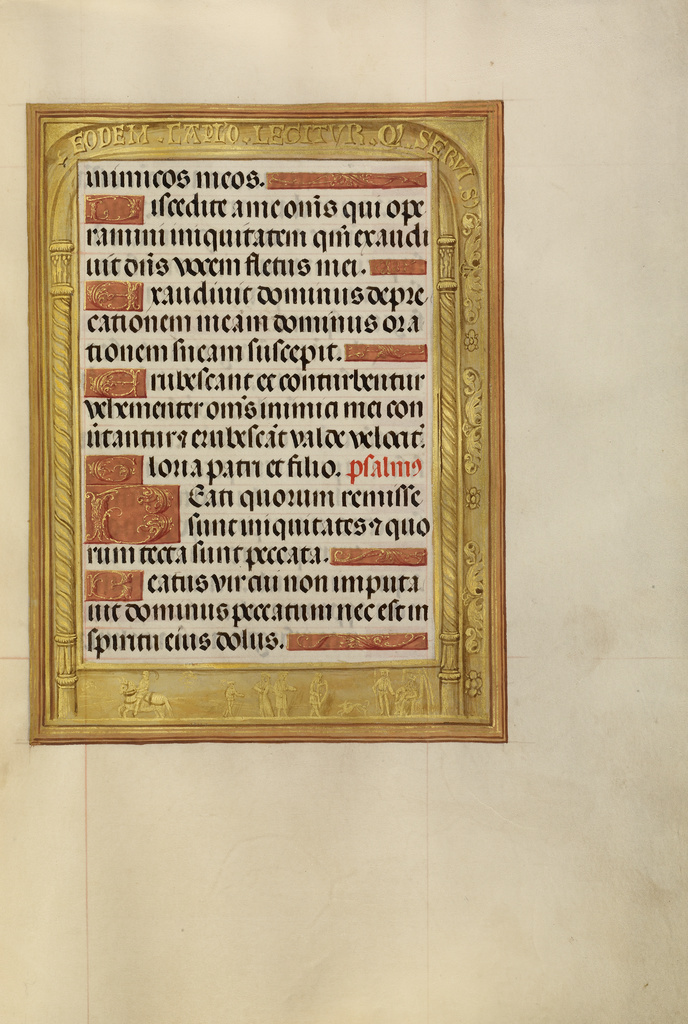 EODEM · CAPLO · LEGITVR · Q · SERVI · S
inimicos meos.
Discedite a me om̄s qui ope
ramini iniquitatem qm̄ exaudi
uit dn̄s vocem fletus mei.
Exaudiuit dominus depre
cationem meam dominus ora
tionem meam suscepit.
Erubescant et conturbentur
vehementer om̄s inimici mei con
uertantur ⁊ erubescāt valde velociť.
Gloria patri et filio. psalmꝰ
Beati quorum remisse
sunt iniquitates ⁊ quo
rum tecta sunt peccata.
Beatus vir cui non imputa
uit dominus peccatum nec est in
spiritu eius dolus.